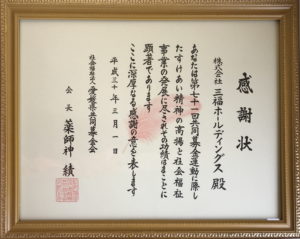 感謝状
株式会社
三福ホールディングス 殿
あなたは第七十一回共同募金運動に際し
たすけあい精神の高揚と社会福祉
事業の発展に尽されその功績はまことに
顕著であります
ここに深厚なる感謝の意を表します
平成三十年三月一日
社会福祉法人 愛媛県共同募金会
会長 薬師神 績